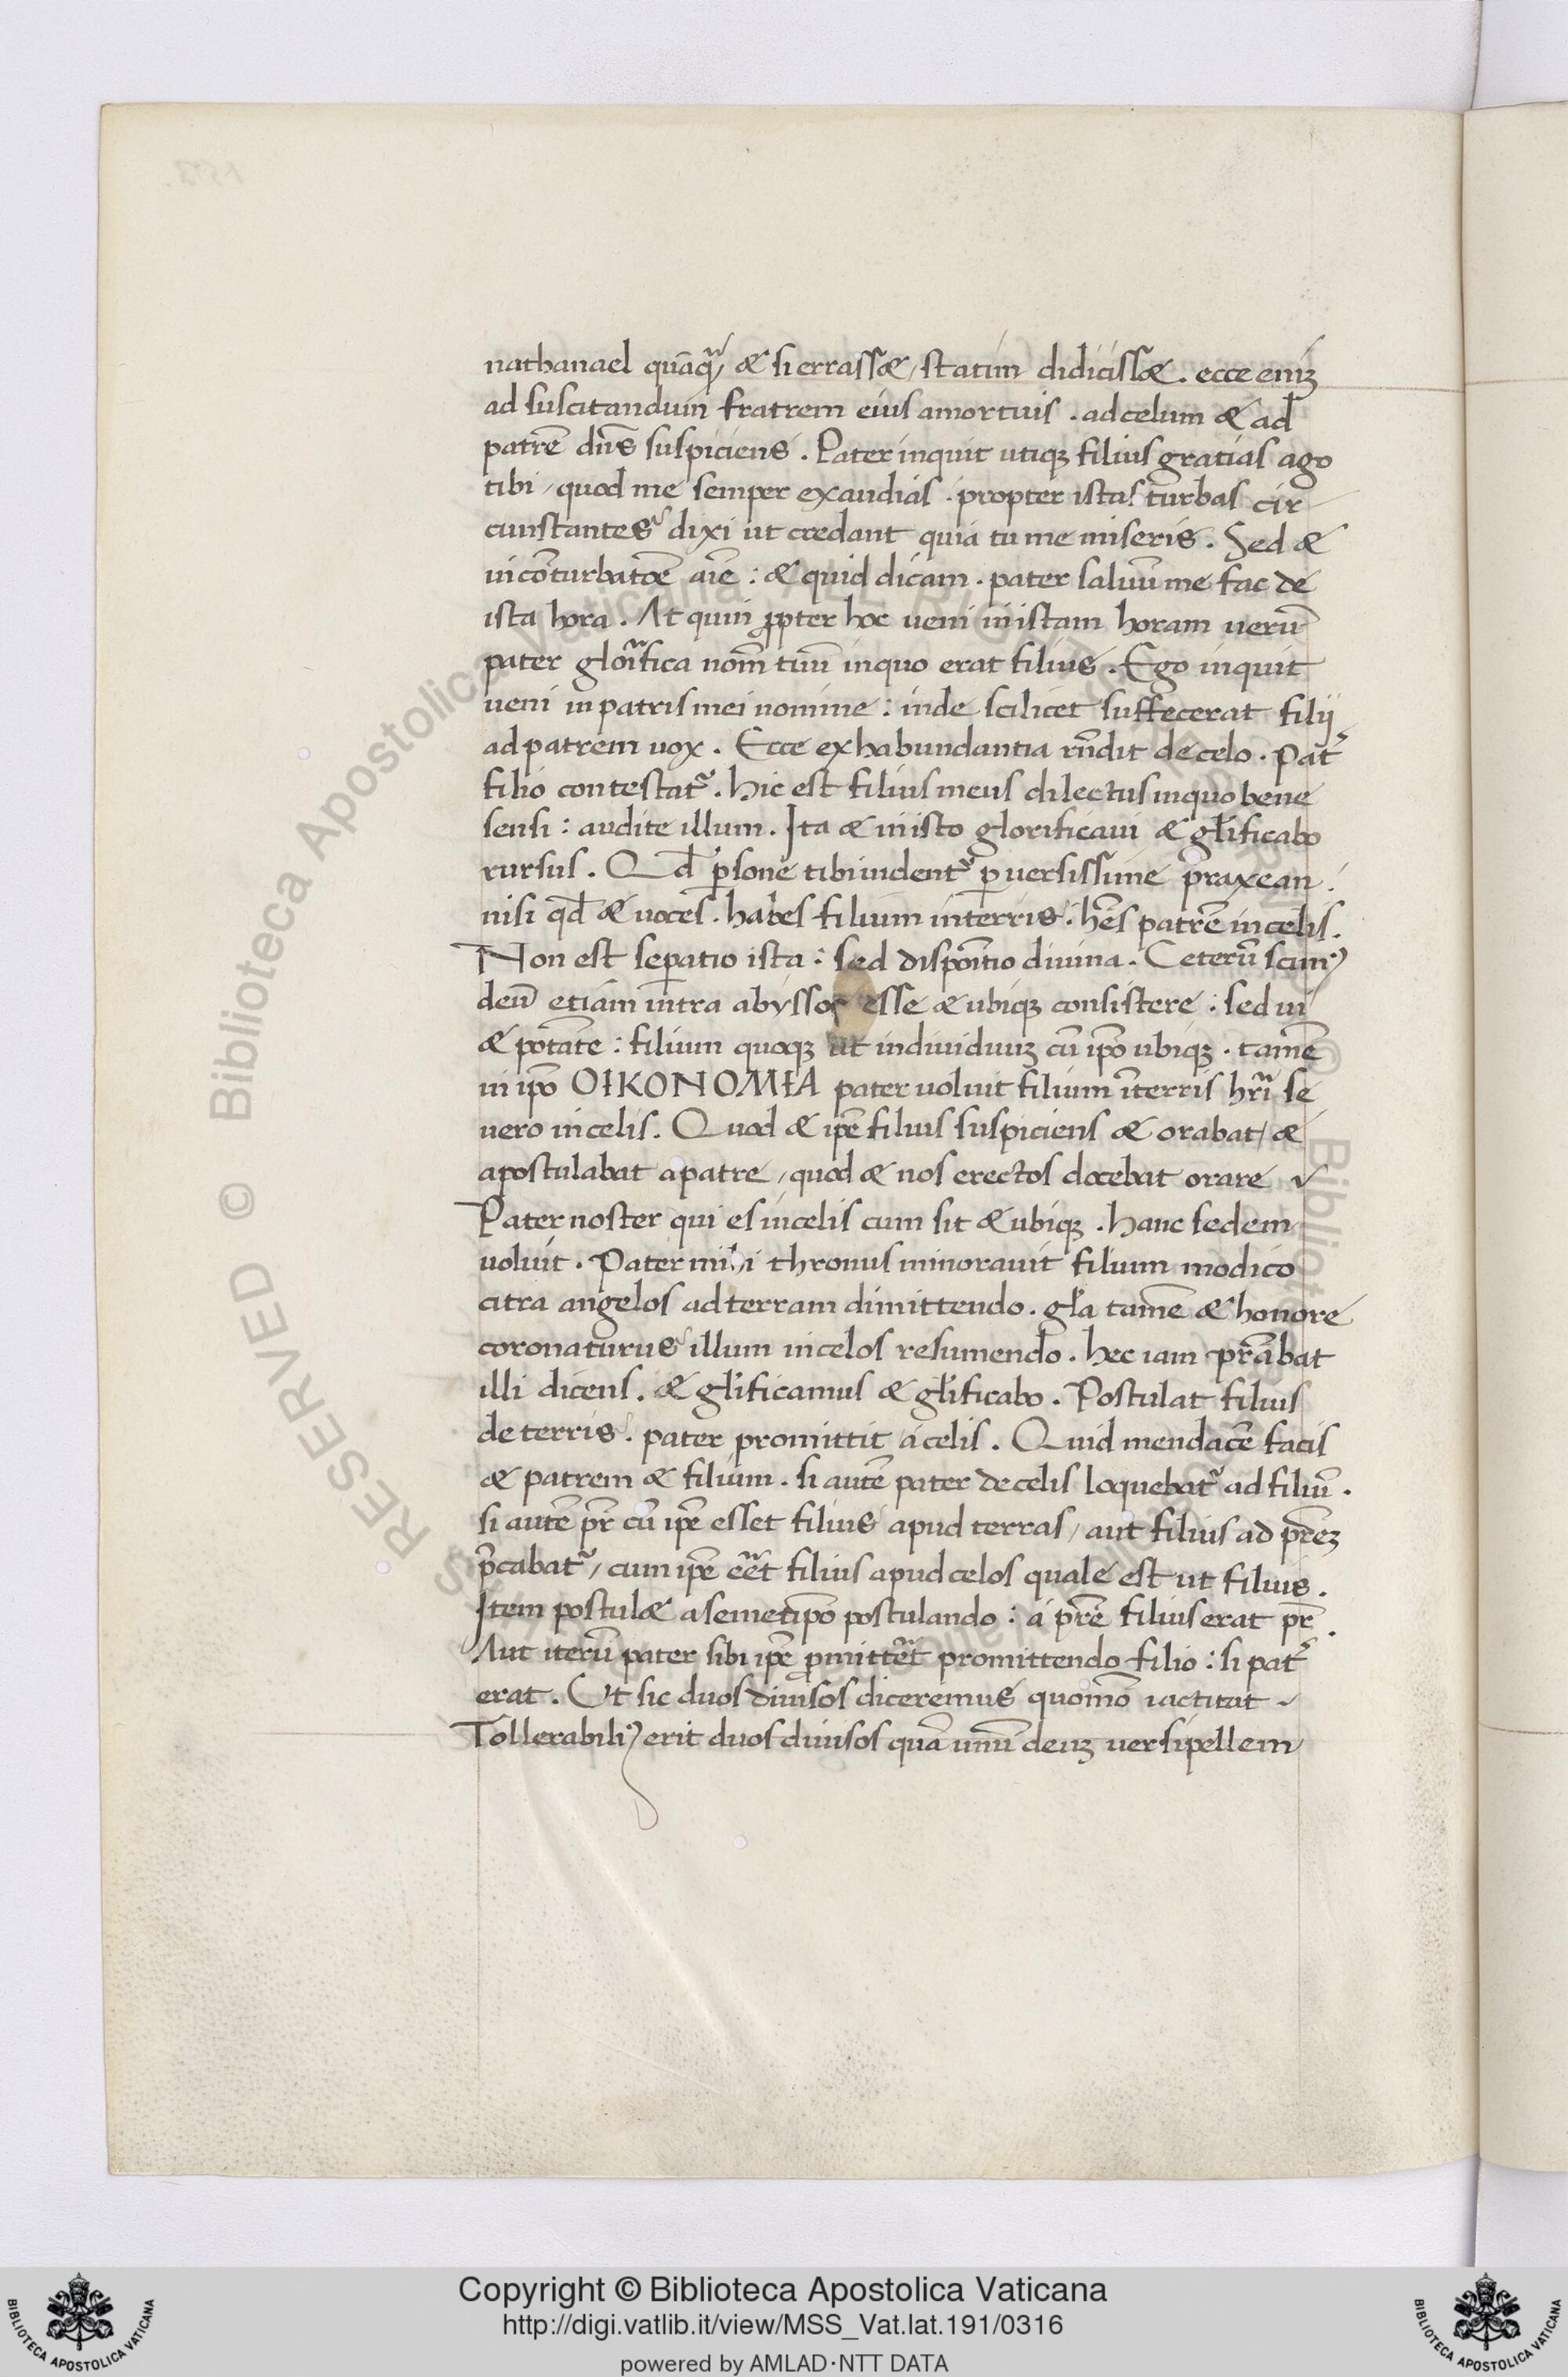 nathanael quāq̃ & si errass&, statim didiciss&. ecce eniꝫ
ad suscitandum fratrem eius amortuis . ad celum & ad
patrē dn̄s suspiciens . Pater inquit utiqꝫ filius gratias ago
tibi, quod me semper exaudias . propter istas turbas cir
cunstantes dixi ut credant quia tu me miseris . Sed &
in cōturbatōe aīe : & quid dicam . pater saluū me fac de
ista hora . At quin ꝓpter hoc ueni in istam horam uerū
pater glōrifica nom̄ tuū inquo erat filius . Ego inquit
ueni in patris mei nomine : inde scilicet suffecerat filij
ad patrem uox . Ecce exhabundantia rn̄dit de celo . Pat᷑
filio contestat᷑ . hic est filius meus dilectus inquo bene
sensi : audite illum . Ita & in isto glorificaui & gl̄ificabo
rursus . Qd̄ ꝑsone tibi uident᷑ ꝑuersissime praxean .
nisi qd̄ & uoces . habes filium interris . hēs patrē in celis .
Non est seꝑatio ista : sed dispōitio diuina . Ceterū scimꝰ
deū etiam intra abyssos esse & ubiqꝫ consistere : sed ui
& potāte : filium quoqꝫ ut indiuiduuꝫ cū ip̄o ubiqꝫ . tamē
in ip̄o OIKONOMIA pater uoluit filium īterris hr̄i se
uero in celis . Quod & ip̄e filius suspiciens & orabat, &
apostulabat apatre, quod & nos erectos docebat orare
Pater noster qui es incelis cum sit & ubiqꝫ . hanc sedem
uoluit . Pater mihi thronus minorauit filium modico
citra angelos ad terram dimittendo . gl̄a tamē & honore
coronaturus illum in celos resumendo . hec iam pr̄abat
illi dicens . & gl̄ificamus & gl̄ificabo . Postulat filius
de terris . pater promittit a celis . Quid mendacē facis
& patrem & filium . si autē pater de celis loquebat᷑ ad filiū .
si autē pr̄ cū ip̄e esset filius apud terras, aut filius ad pr̄eꝫ
p̄cabat᷑, cum ip̄e eēt filius apud celos quale est ut filius .
Item postul& a semetip̄o postulando : a pr̄e filius erat pr̄ .
Aut iterū pater sibi ip̄e ꝓmittēt promittendo filio : si pat᷑
erat . Ut sic duos diuisos diceremus quomō iactitat
Tollerabiliꝰ erit duos diuisos quā unū deuꝫ uersipellem
Copyright © Biblioteca Apostolica Vaticana
http://digi.vatlib.it/view/MSS_Vat.lat.191/0316
powered by AMLAD·NTT DATA